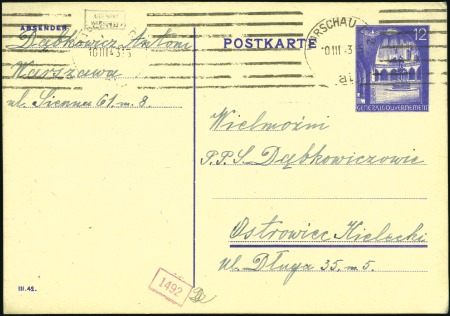 ABSENDER:
Dąbkowicz Antoni
Warszawa
ul. Sienna 61 m. 8
POSTKARTE
WARSCHAU
10 III 43
12
GENERALGOUVERNEMENT
Wielmożni
P.P.S. Dąbkowiczowie
Ostrowiec Kielecki
ul. Długa 35, m. 5.
III. 42.
1492